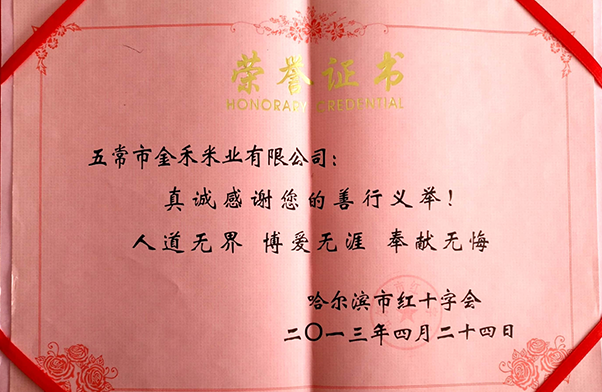 荣誉证书
HONORARY CREDENTIAL
五常市金禾米业有限公司：
真诚感谢您的善行义举！
人道无界 博爱无涯 奉献无悔
哈尔滨市红十字会
二〇一三年四月二十四日